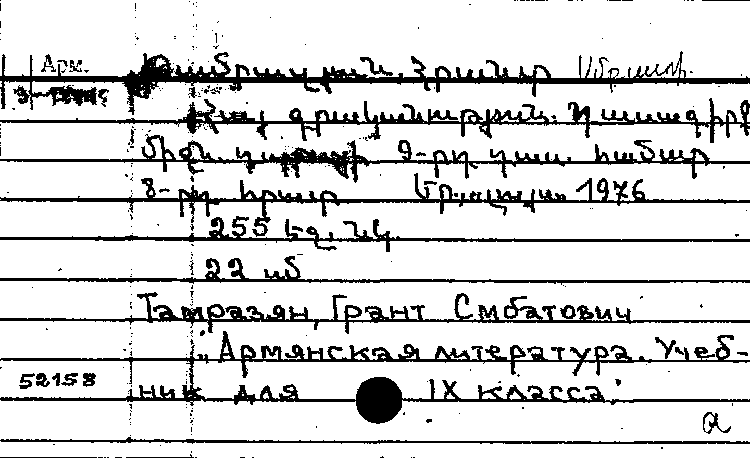 Арм. Թամրազյան, Հրանտ Սմբատի
Հայ գրականություն. Դասագիրք
միջն. դպրոցի 9-րդ դաս. համար
8-րդ հրատ Երևան 1976
255 էջ, նկ
22 սմ
Тамразян, Грант Смбатович
"Армянская литература. Учеб-
52158 ник для IX класса."
а